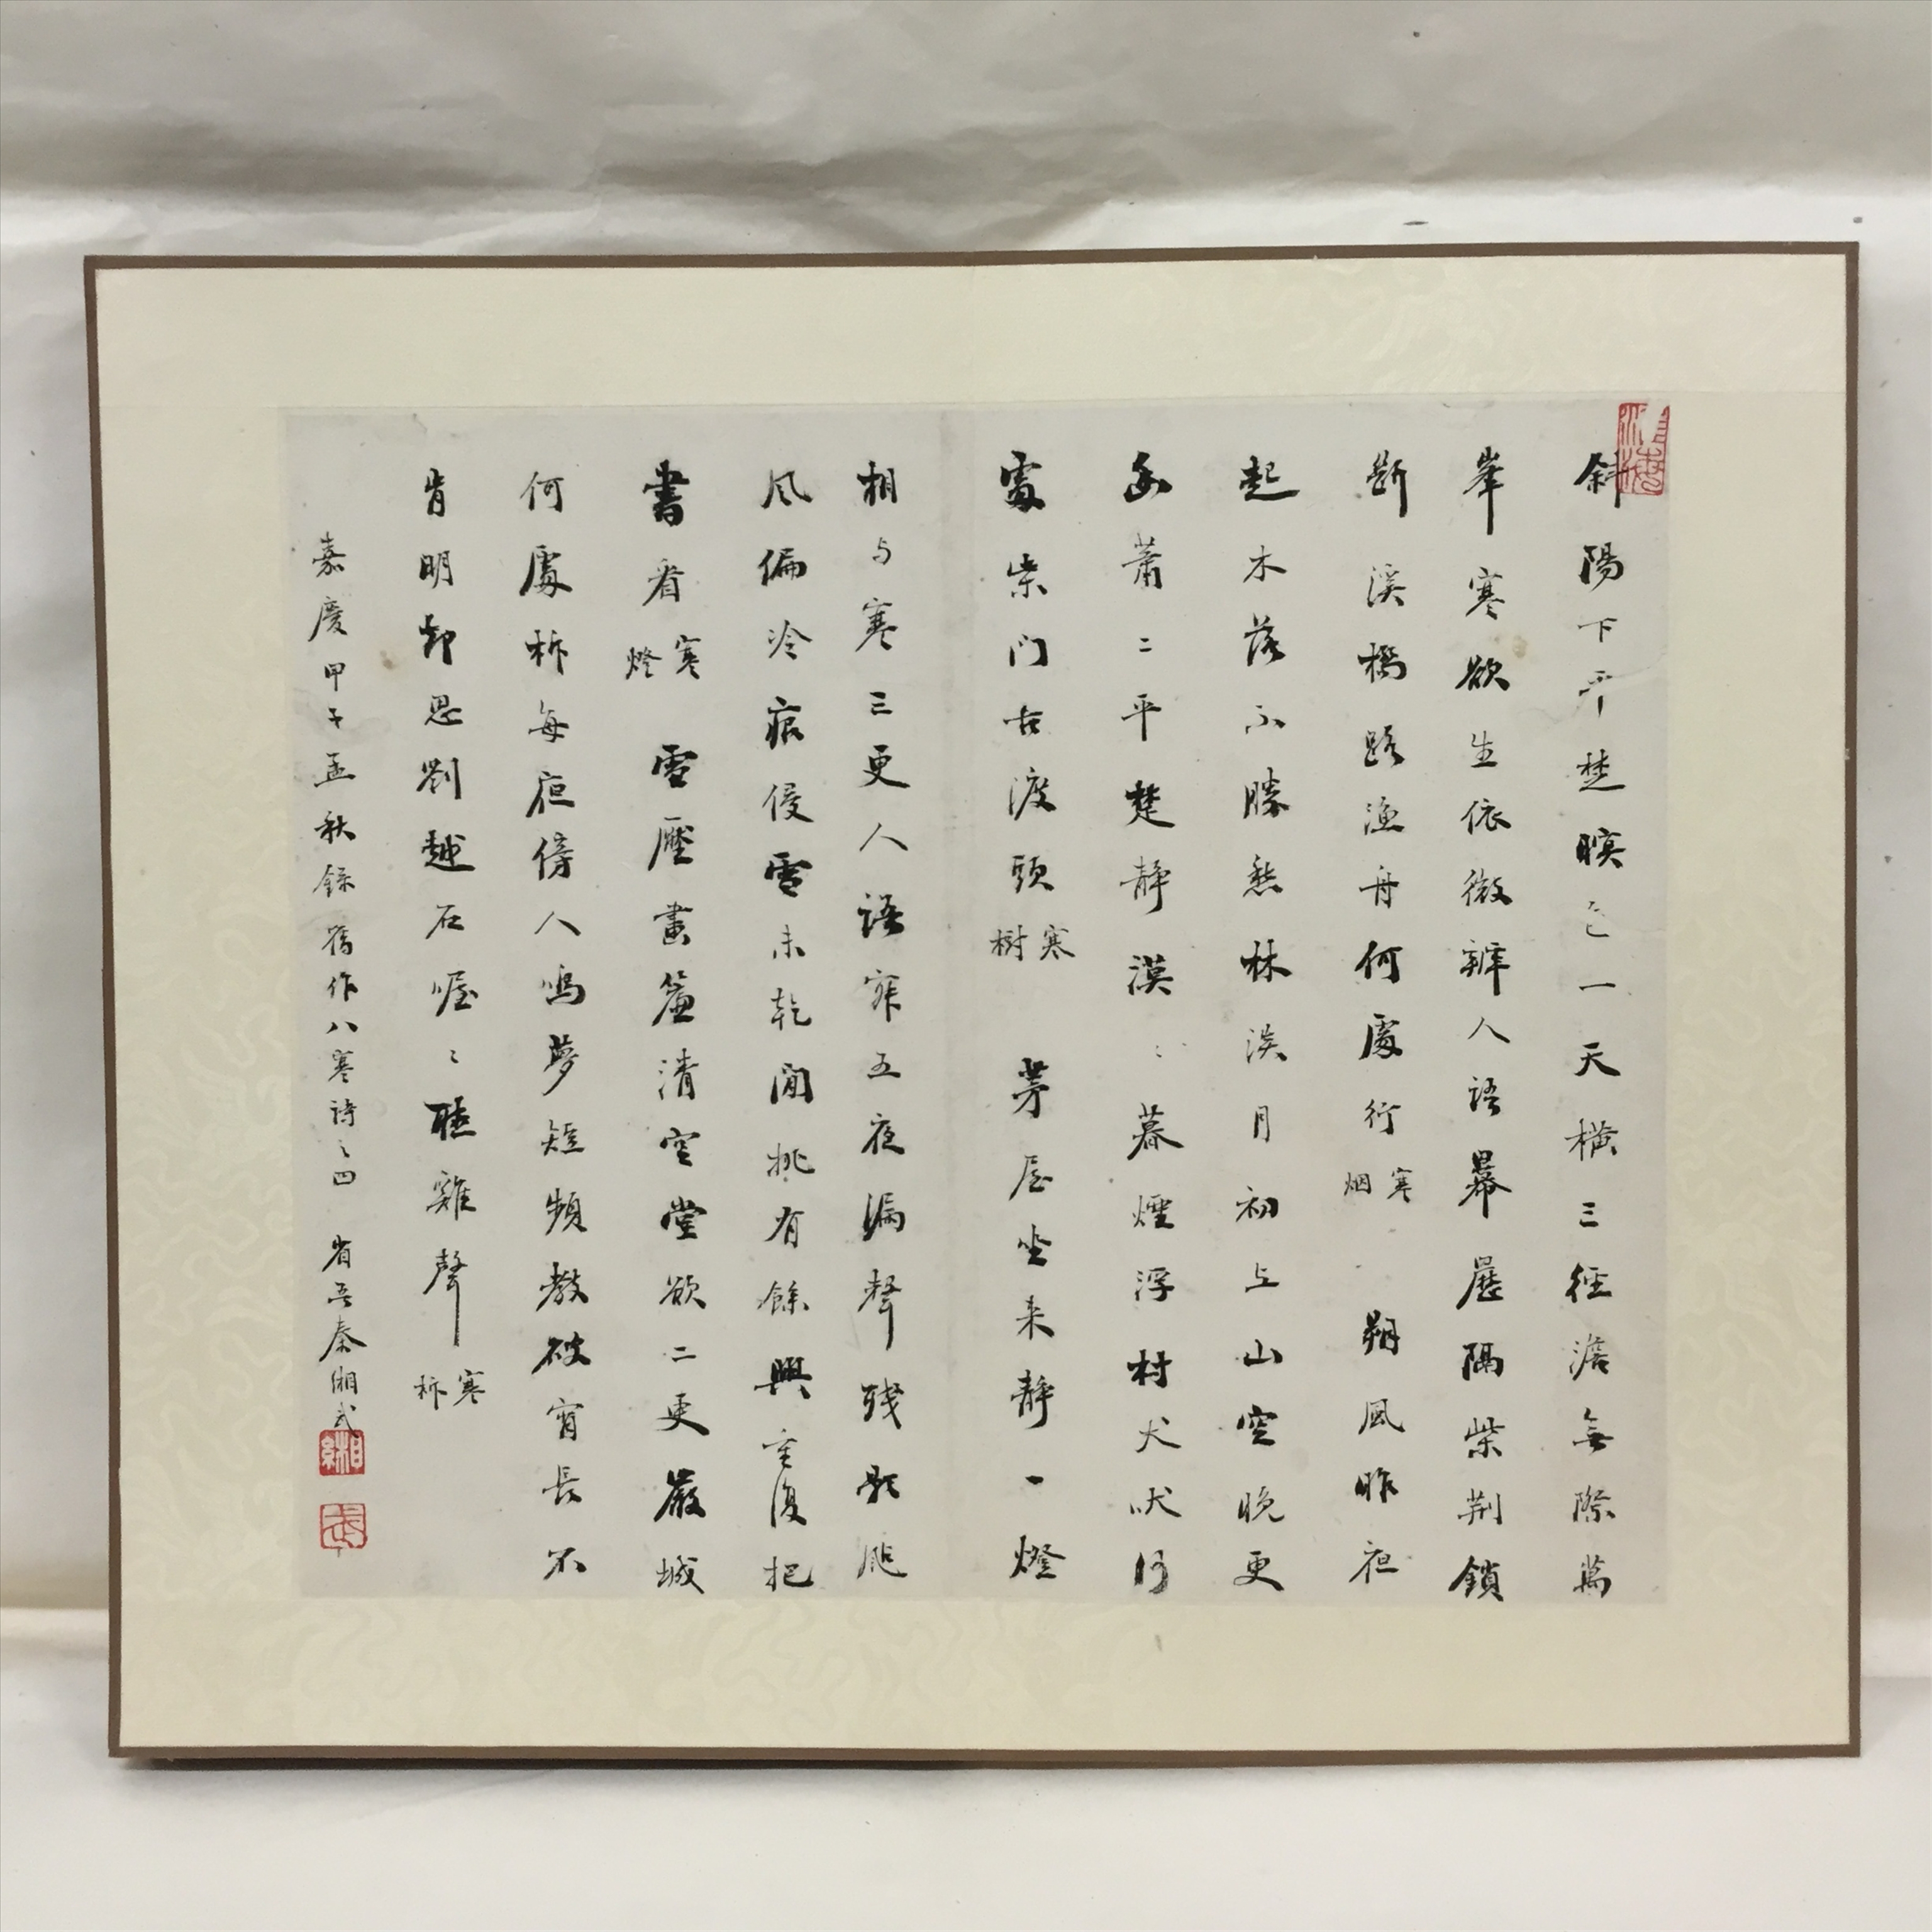 斜陽下平楚暝色一天橫三徑澹無際萬
峯寒欲生依微辨人語幕歷隔柴荆鎖
斷溪橋路漁舟何處行寒烟 朔風昨夜
起木落不勝愁林淡月初上山空晚更
幽蕭二平楚静漠〻暮煙浮村犬吠何
處柴门古渡頭寒樹 茅屋坐来静一燈
相与寒三更人語寂五夜漏聲殘影颭
风偏冷痕侵雪未乾閒挑有餘興重復把
書看寒燈 雪壓畫簾清空堂欲二更嚴城
何處柝每夜傍人鳴夢短頻教破宵長不
肯明却思劉越石喔〻聽雞聲寒柝
嘉慶甲子孟秋錄舊作八寒詩之四 省吾秦緗武
緗
武